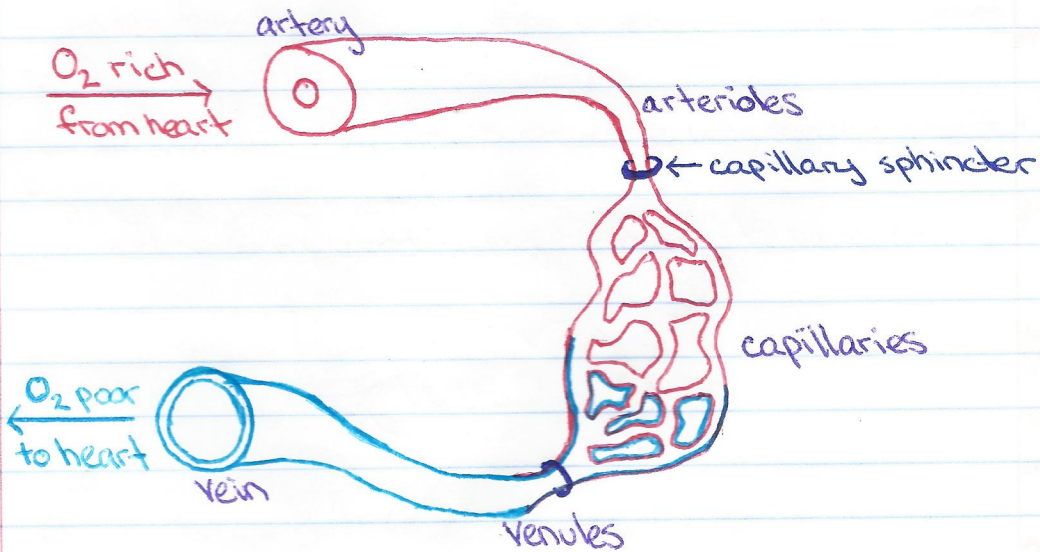 artery
O₂ rich
from heart
arterioles
← capillary sphincter
capillaries
O₂ poor
to heart
vein
venules